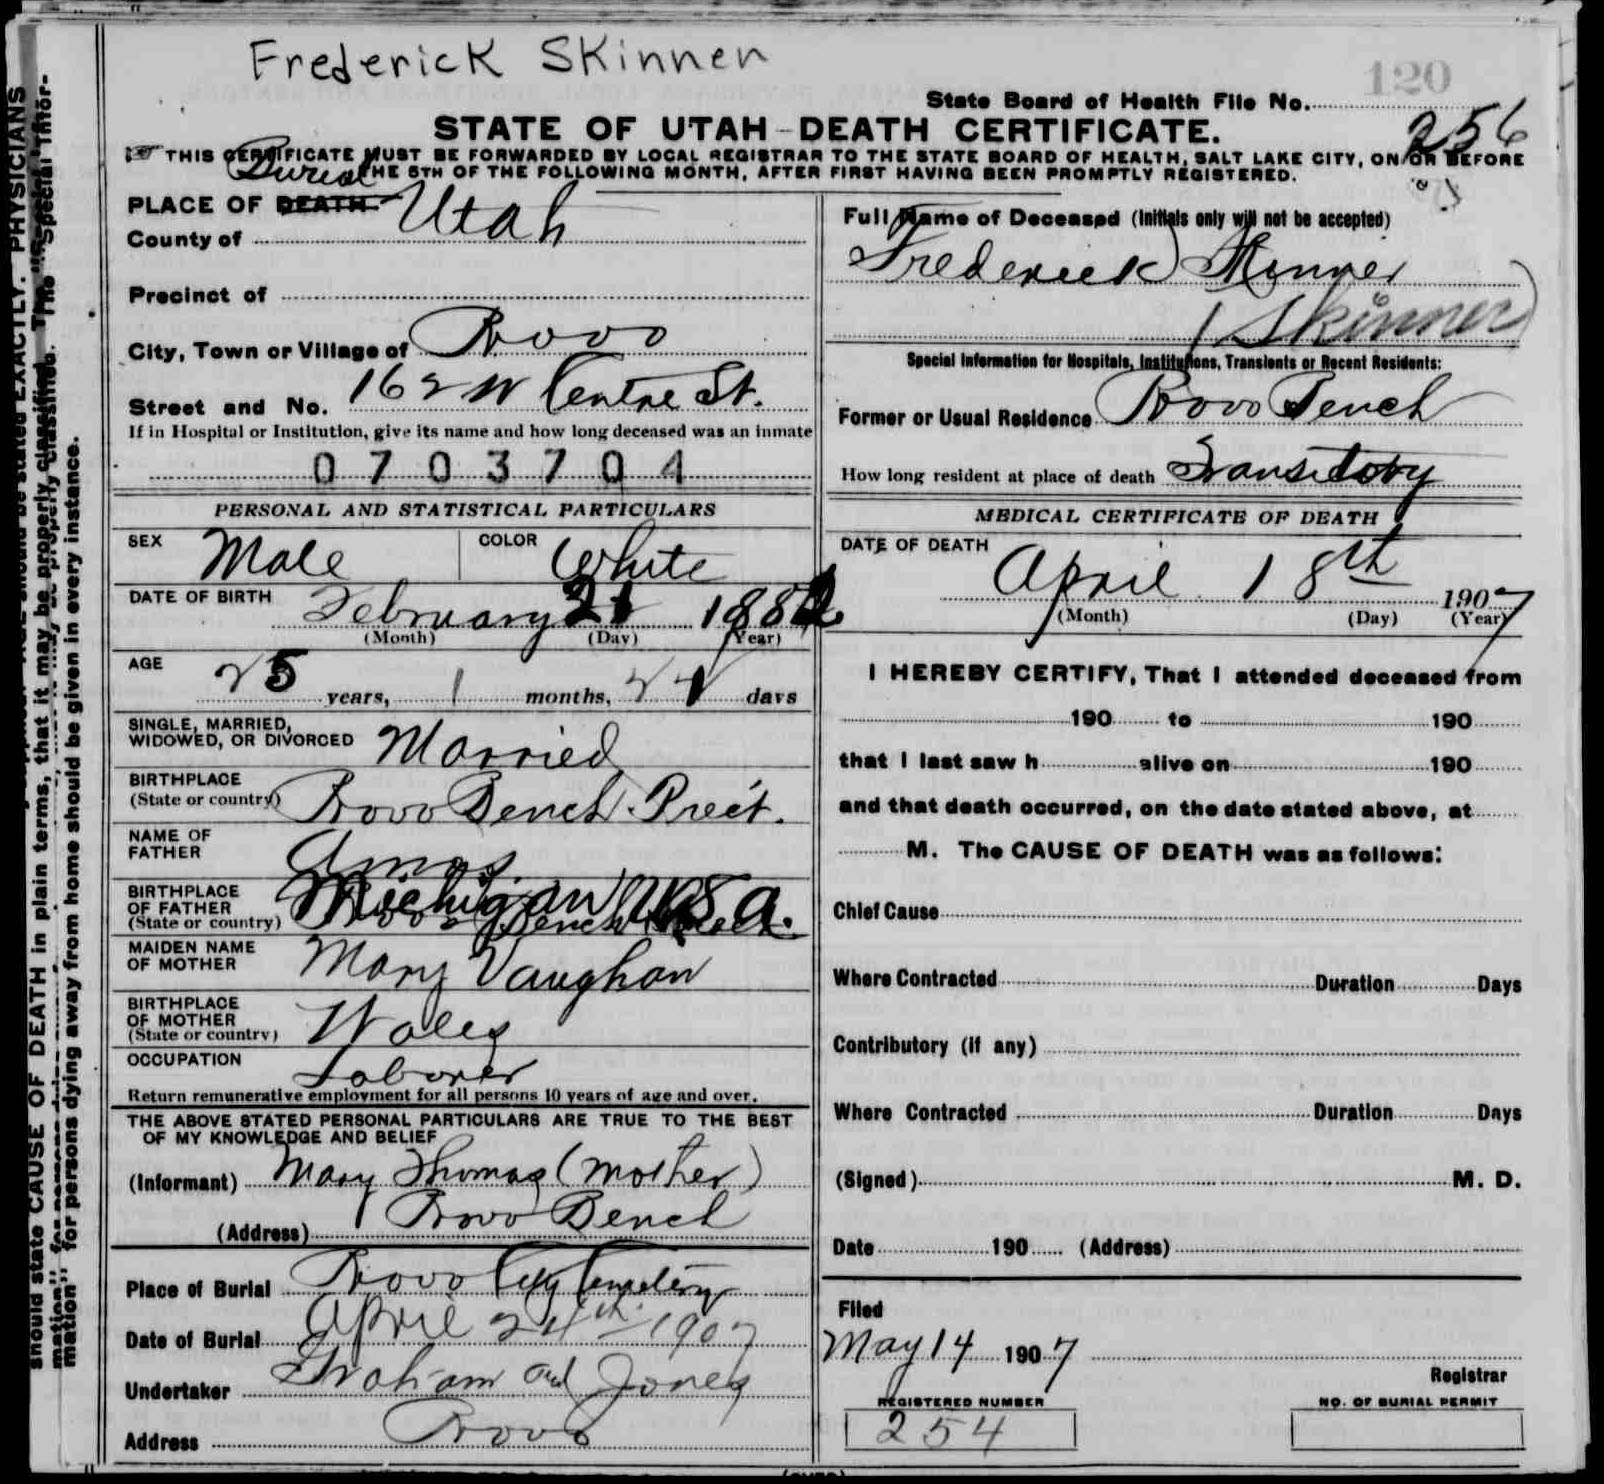 Frederick Skinner
120
State Board of Health File No. 256
STATE OF UTAH-DEATH CERTIFICATE.
THIS CERTIFICATE MUST BE FORWARDED BY LOCAL REGISTRAR TO THE STATE BOARD OF HEALTH, SALT LAKE CITY, ON OR BEFORE
THE 5TH OF THE FOLLOWING MONTH, AFTER FIRST HAVING BEEN PROMPTLY REGISTERED.
Burial
PLACE OF DEATH
County of Utah
Precinct of
City, Town or Village of Provo
Street and No. 162 W Centre St.
If in Hospital or Institution, give its name and how long deceased was an inmate
0703704
PERSONAL AND STATISTICAL PARTICULARS
SEX Male COLOR White
DATE OF BIRTH February 21 1882
(Month) (Day) (Year)
AGE 25 years, 1 months, 2 days
SINGLE, MARRIED,
WIDOWED, OR DIVORCED Married
BIRTHPLACE
(State or country) Provo Bench Prect.
NAME OF
FATHER Amos
BIRTHPLACE
OF FATHER
(State or country) Michigan USA.
MAIDEN NAME
OF MOTHER Mary Vaughan
BIRTHPLACE
OF MOTHER
(State or country) Wales
OCCUPATION Laborer
Return remunerative employment for all persons 10 years of age and over.
THE ABOVE STATED PERSONAL PARTICULARS ARE TRUE TO THE BEST
OF MY KNOWLEDGE AND BELIEF
(Informant) Mary Thomas (Mother)
(Address) Provo Bench
Place of Burial Provo City Cemetery
Date of Burial April 24th 1907
Undertaker Graham and Jones
Address Provo
Full Name of Deceased (Initials only will not be accepted)
Frederick Skinner
(Skinner)
Special Information for Hospitals, Institutions, Transients or Recent Residents:
Former or Usual Residence Provo Bench
How long resident at place of death Transitory
MEDICAL CERTIFICATE OF DEATH
DATE OF DEATH
April 18th 1907
(Month) (Day) (Year)
I HEREBY CERTIFY, That I attended deceased from
190 to 190
that I last saw h alive on 190
and that death occurred, on the date stated above, at
M. The CAUSE OF DEATH was as follows:
Chief Cause
Where Contracted Duration Days
Contributory (if any)
Where Contracted Duration Days
(Signed) M. D.
Date 190 (Address)
Filed
May 14 1907
Registrar
REGISTERED NUMBER
254
NO. OF BURIAL PERMIT
should state CAUSE OF DEATH in plain terms, that it may be properly classified. The "Special Infor-
mation" for persons dying away from home should be given in every instance.